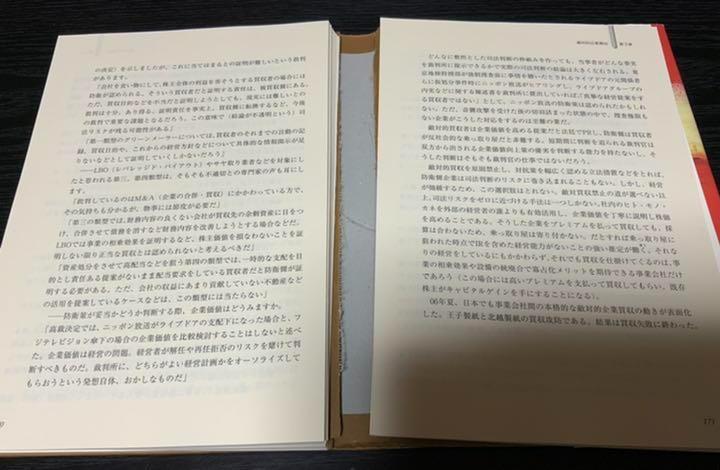 の決定）を示しましたが、これに当てはまるとの証明が難しいという批判
があります。
「会社を食い物にして、株主全体の利益を害そうとする買収者の場合には
防衛が認められる。そういう買収者だと証明する責任は、被買収側にある。
ただ、買収目的などを不当だと証明しようとしても、現実には難しいとの
批判は十分、あり得る。証明責任を事実上、買収側に転換するなど、今後
の裁判で重要な課題となるだろう。この意味で（結論が不透明という）司
法リスクが残る可能性がある」
「第一類型のグリーンメーラーについては、買収者のそれまでの活動の記
録、買収目的や、これからの経営方針などについて具体的な情報開示が足
りないなどとして証明していくしかないだろう」
――LBO（レバレッジド・バイアウト）やサヤ取り業者などを対象にし
たと思われる第三、第四類型は、そもそも不適切との専門家の声も耳にし
ます。
「批判しているのはM&A（企業の合併・買収）にかかわっている方で、
その気持ちも分かるが、物事には節度が必要だ」
「第三の類型では、財務内容の良くない会社が買収先の余剰資産に目をつ
け、合併させて債務を消すなど財務内容を改善しようとする場合などだ。
LBOでは事業の相乗効果を証明するなど、株主価値を損なわないことを証
明しない限り正当な買収とは認められないと考えるべきだ」
「資産処分をさせて高配当などを狙う第四の類型では、一時的な支配を目
的とし責任ある提案がないまま配当要求をしている買収者だと防衛側が証
明する必要がある。ただ、会社の収益にあまり貢献していない不動産など
の活用を提案しているケースなどは、この類型には当たらない」
――防衛策が妥当かどうか判断する際、企業価値はどうみますか。
「高裁決定では、ニッポン放送がライブドアの支配下になった場合と、フ
ジテレビジョン傘下の場合の企業価値を比較検討することはしないと述べ
た。企業価値は経営の問題。経営者が解任や再任拒否のリスクを賭けて判
断すべきものだ。裁判所に、どちらがよい経営計画かをオーソライズして
もらおうという発想自体、おかしなものだ」
敵対的企業買収 第5章
どんなに整然とした司法判断の枠組みを作っても、当事者がどんな事実
を裁判所に提示できるかで実際の司法判断の結論は大きく左右される。東
京地検特捜部が強制捜査前に事情を聴いたとされるライブドアの元関係者
も
ニッポン放送がヒアリングし、ライブドアグループの
内実などに関する陳述書を裁判所に提出していれば、「真摯な経営提案をす
る買収者ではない」として、ニッポン放送の防衛策は認められたかもしれ
ない。ただ、奇襲攻撃を受けた後の非常時ゆえ、捜査権限も
ない企業がこうした対応をするのは至難の業だ。
敵対的買収者は企業価値を高める提案だと法廷でPRし、防衛側は買収者
が反社会的な乗っ取り屋だと罵倒する。短期間に判断を迫られる裁判官は
双方から出される企業価値向上策の優劣を判断する能力を持たないし、そ
うした判断はそもそも裁判官の仕事ではないだろう。
敵対的買収を原則禁止し、対抗策を幅広く認める立法措置などをとれば、
防衛側企業は司法判断のリスクに巻き込まれることもない。しかし、経営
が弛緩するため、この選択肢はとれない。敵対的買収禁止の道が選べない以
上、司法リスクをゼロに近づける手法は一つしかない。社内のヒト・モノ・
カネを外部の経営者の誰よりも有効活用し、企業価値を丁寧に説明し株価
を高めることである。そうした企業をプレミアムを払って買収しても、採
算は合わないため、乗っ取り屋は寄り付かない。だとすれば乗っ取り屋に
狙われた時点で
りの経営をしているにもかかわらず、それでも買収を仕掛けてくるのは、事
業の相乗効果や設備の統廃合で寡占化メリットを期待できる事業会社だけ
であろう（この場合には高いプレミアムを支払って買収してもらい、既存
株主がキャピタルゲインを手にすることになる）。
06年夏、日本でも事業会社間の本格的な敵対的企業買収の動きが表面化
した。王子製紙と北越製紙の買収攻防である。結果は買収失敗に終わった。
171